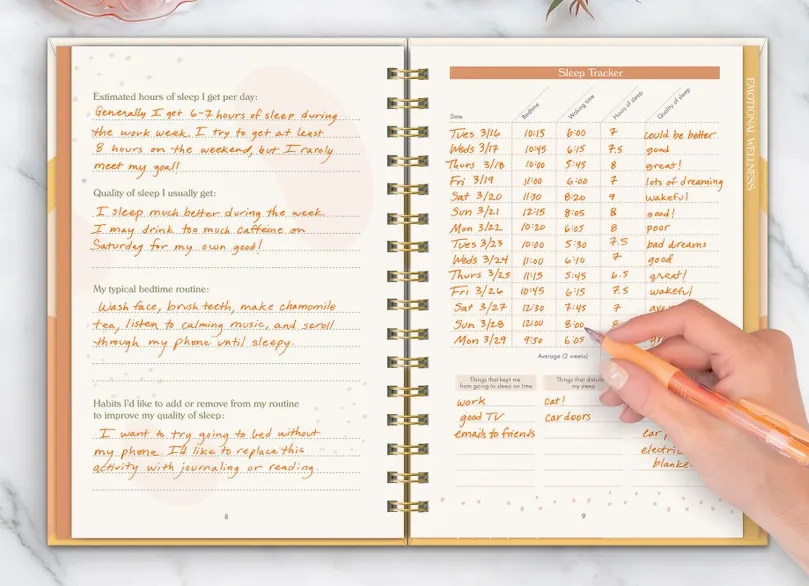 Estimated hours of sleep I get per day:
Generally I get 6-7 hours of sleep during
the work week. I try to get at least
8 hours on the weekend, but I rarely
meet my goal!
Quality of sleep I usually get:
I sleep much better during the week.
I may drink too much caffeine on
Saturday for my own good!
My typical bedtime routine:
Wash face, brush teeth, make chamomile
tea, listen to calming music, and scroll
through my phone until sleepy.
Habits I'd like to add or remove from my routine
to improve my quality of sleep:
I want to try going to bed without
my phone. I'd like to replace this
activity with journaling or reading.
8
Sleep Tracker
Date Bedtime Waking time Hours of sleep Quality of sleep
Tues 3/16 10:15 6:00 7 could be better
Weds 3/17 10:45 6:15 7.5 good
Thurs 3/18 10:00 5:45 8 great!
Fri 3/19 11:00 6:00 7 lots of dreaming
Sat 3/20 11:30 8:20 9 wakeful
Sun 3/21 12:15 8:05 8 good!
Mon 3/22 10:20 6:05 8 poor
Tues 3/23 10:00 5:30 7.5 bad dreams
Weds 3/24 11:00 6:10 7 good
Thurs 3/25 11:15 5:45 6.5 great!
Fri 3/26 10:45 6:15 7.5 wakeful
Sat 3/27 12:30 7:45 7
Sun 3/28 12:00 8:00
Mon 3/29 9:50 6:05
Average (2 weeks)
Things that kept me
from going to sleep on time
Things that
my sleep
work cat!
good TV car doors
emails to friends
9
EMOTIONAL WELLNESS